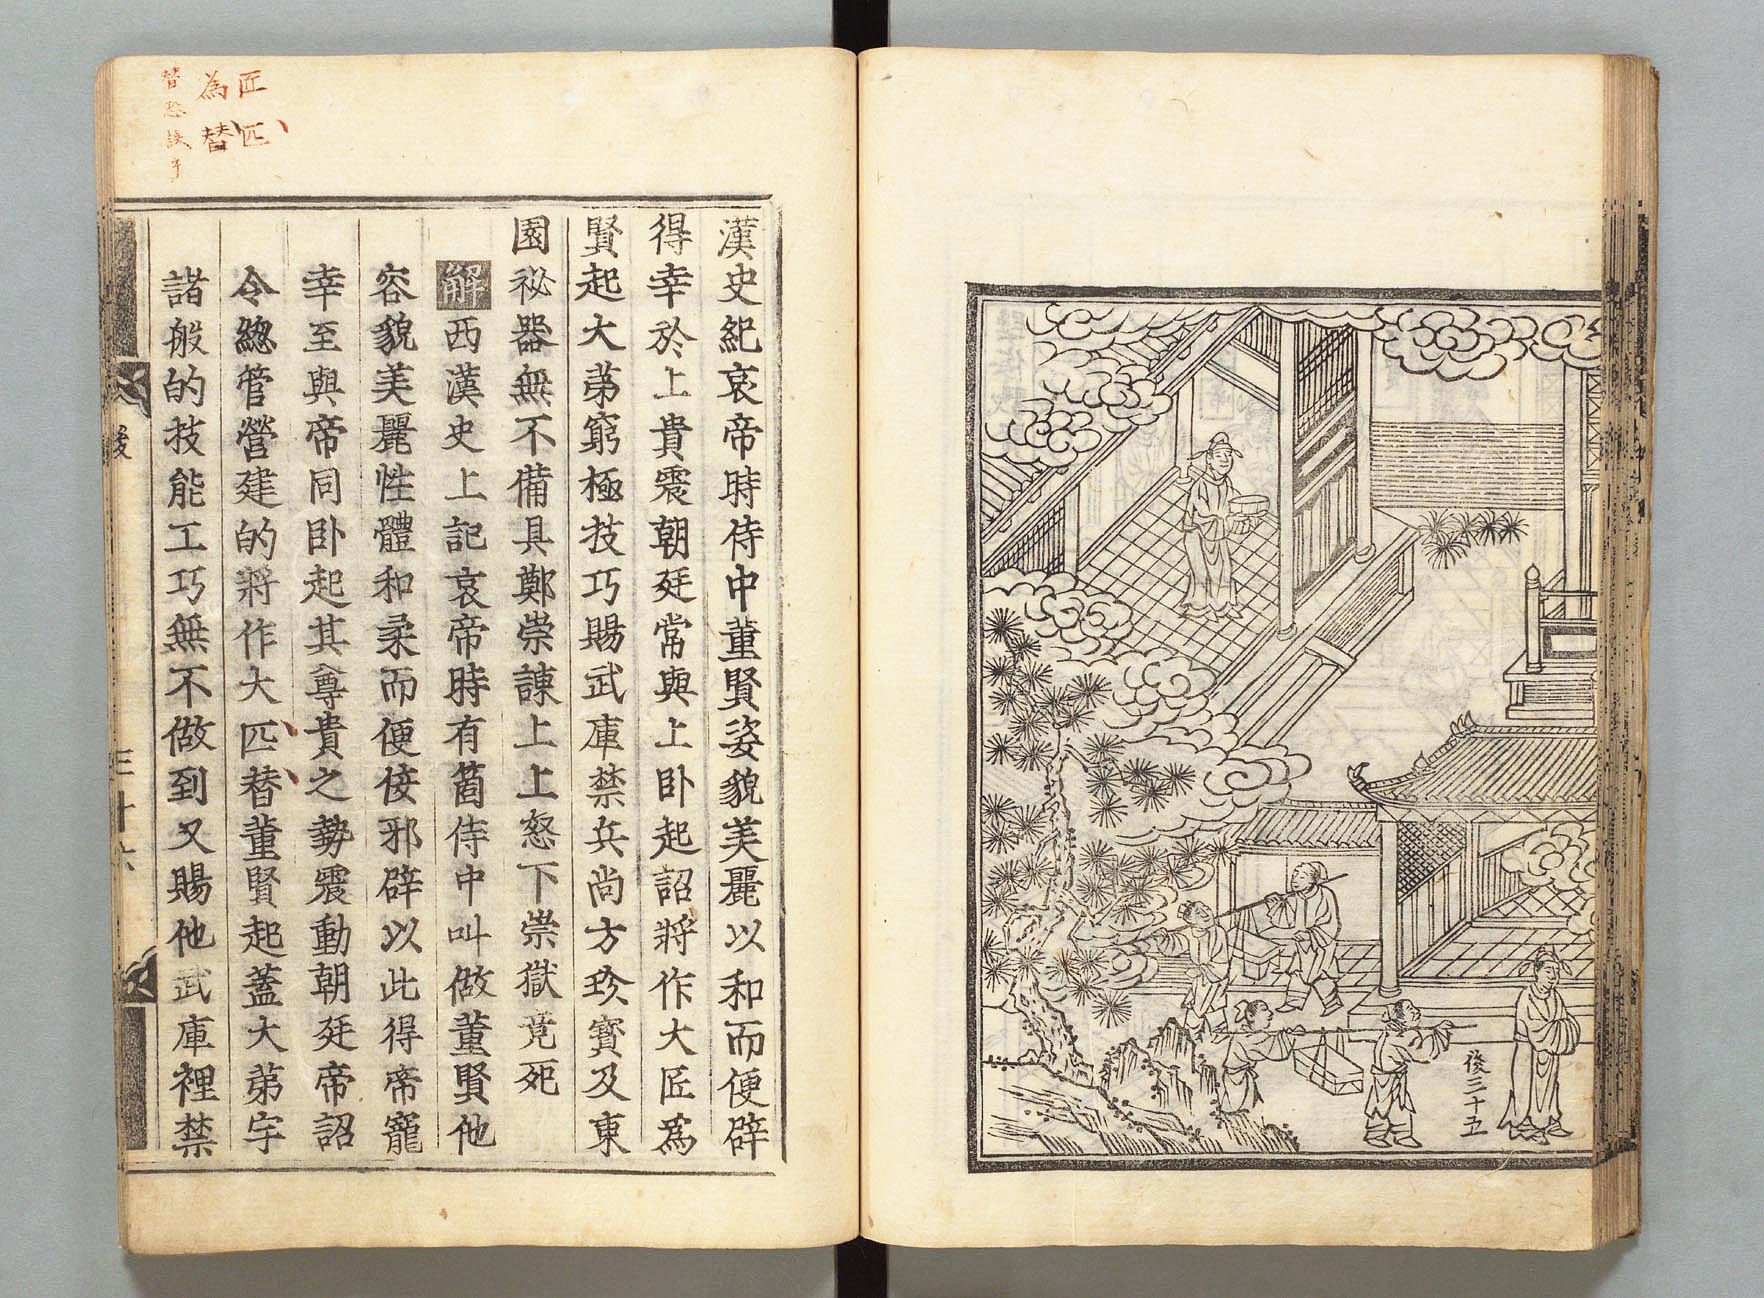 後三十五
匠匹
為替
漢史紀哀帝時侍中董賢姿貌美麗以和而便辟
得幸於上貴震朝廷常與上卧起詔將作大匠爲
賢起大苐窮極技巧賜武庫禁兵尚方珍寶及東
園祕器無不備具鄭崇諫上上怒下崇獄竟死
解西漢史上記哀帝時有箇侍中叫做董賢他
容貌美麗性體和柔而便佞邪辟以此得帝寵
幸至與帝同卧起其尊貴之勢震動朝廷帝詔
令緫管營建的將作大匹替董賢起蓋大苐宇
諸般的技能工巧無不做到又賜他武庫裡禁
後
三十六